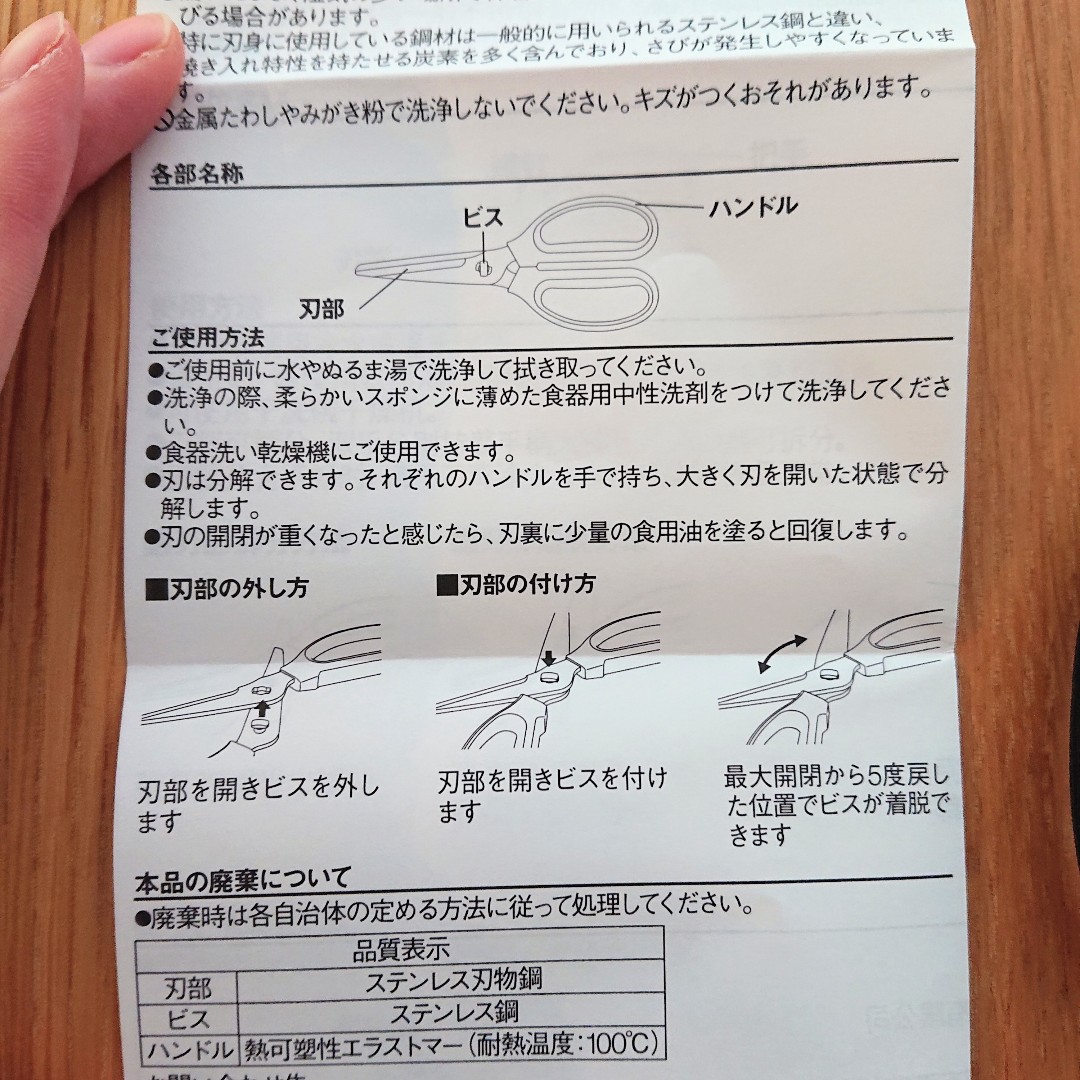 びる場合があります。
特に刃身に使用している鋼材は一般的に用いられるステンレス鋼と違い、
焼き入れ特性を持たせる炭素を多く含んでおり、さびが発生しやすくなっていま
す。
金属たわしやみがき粉で洗浄しないでください。キズがつくおそれがあります。
各部名称
ビス
ハンドル
刃部
ご使用方法
●ご使用前に水やぬるま湯で洗浄して拭き取ってください。
●洗浄の際、柔らかいスポンジに薄めた食器用中性洗剤をつけて洗浄してくださ
い。
●食器洗い乾燥機にご使用できます。
●刃は分解できます。それぞれのハンドルを手で持ち、大きく刃を開いた状態で分
解します。
●刃の開閉が重くなったと感じたら、刃裏に少量の食用油を塗ると回復します。
■刃部の外し方
■刃部の付け方
刃部を開きビスを外し
ます
刃部を開きビスを付け
ます
最大開閉から5度戻し
た位置でビスが着脱で
きます
本品の廃棄について
●廃棄時は各自治体の定める方法に従って処理してください。
品質表示
刃部 ステンレス刃物鋼
ビス ステンレス鋼
ハンドル 熱可塑性エラストマー(耐熱温度:100℃)